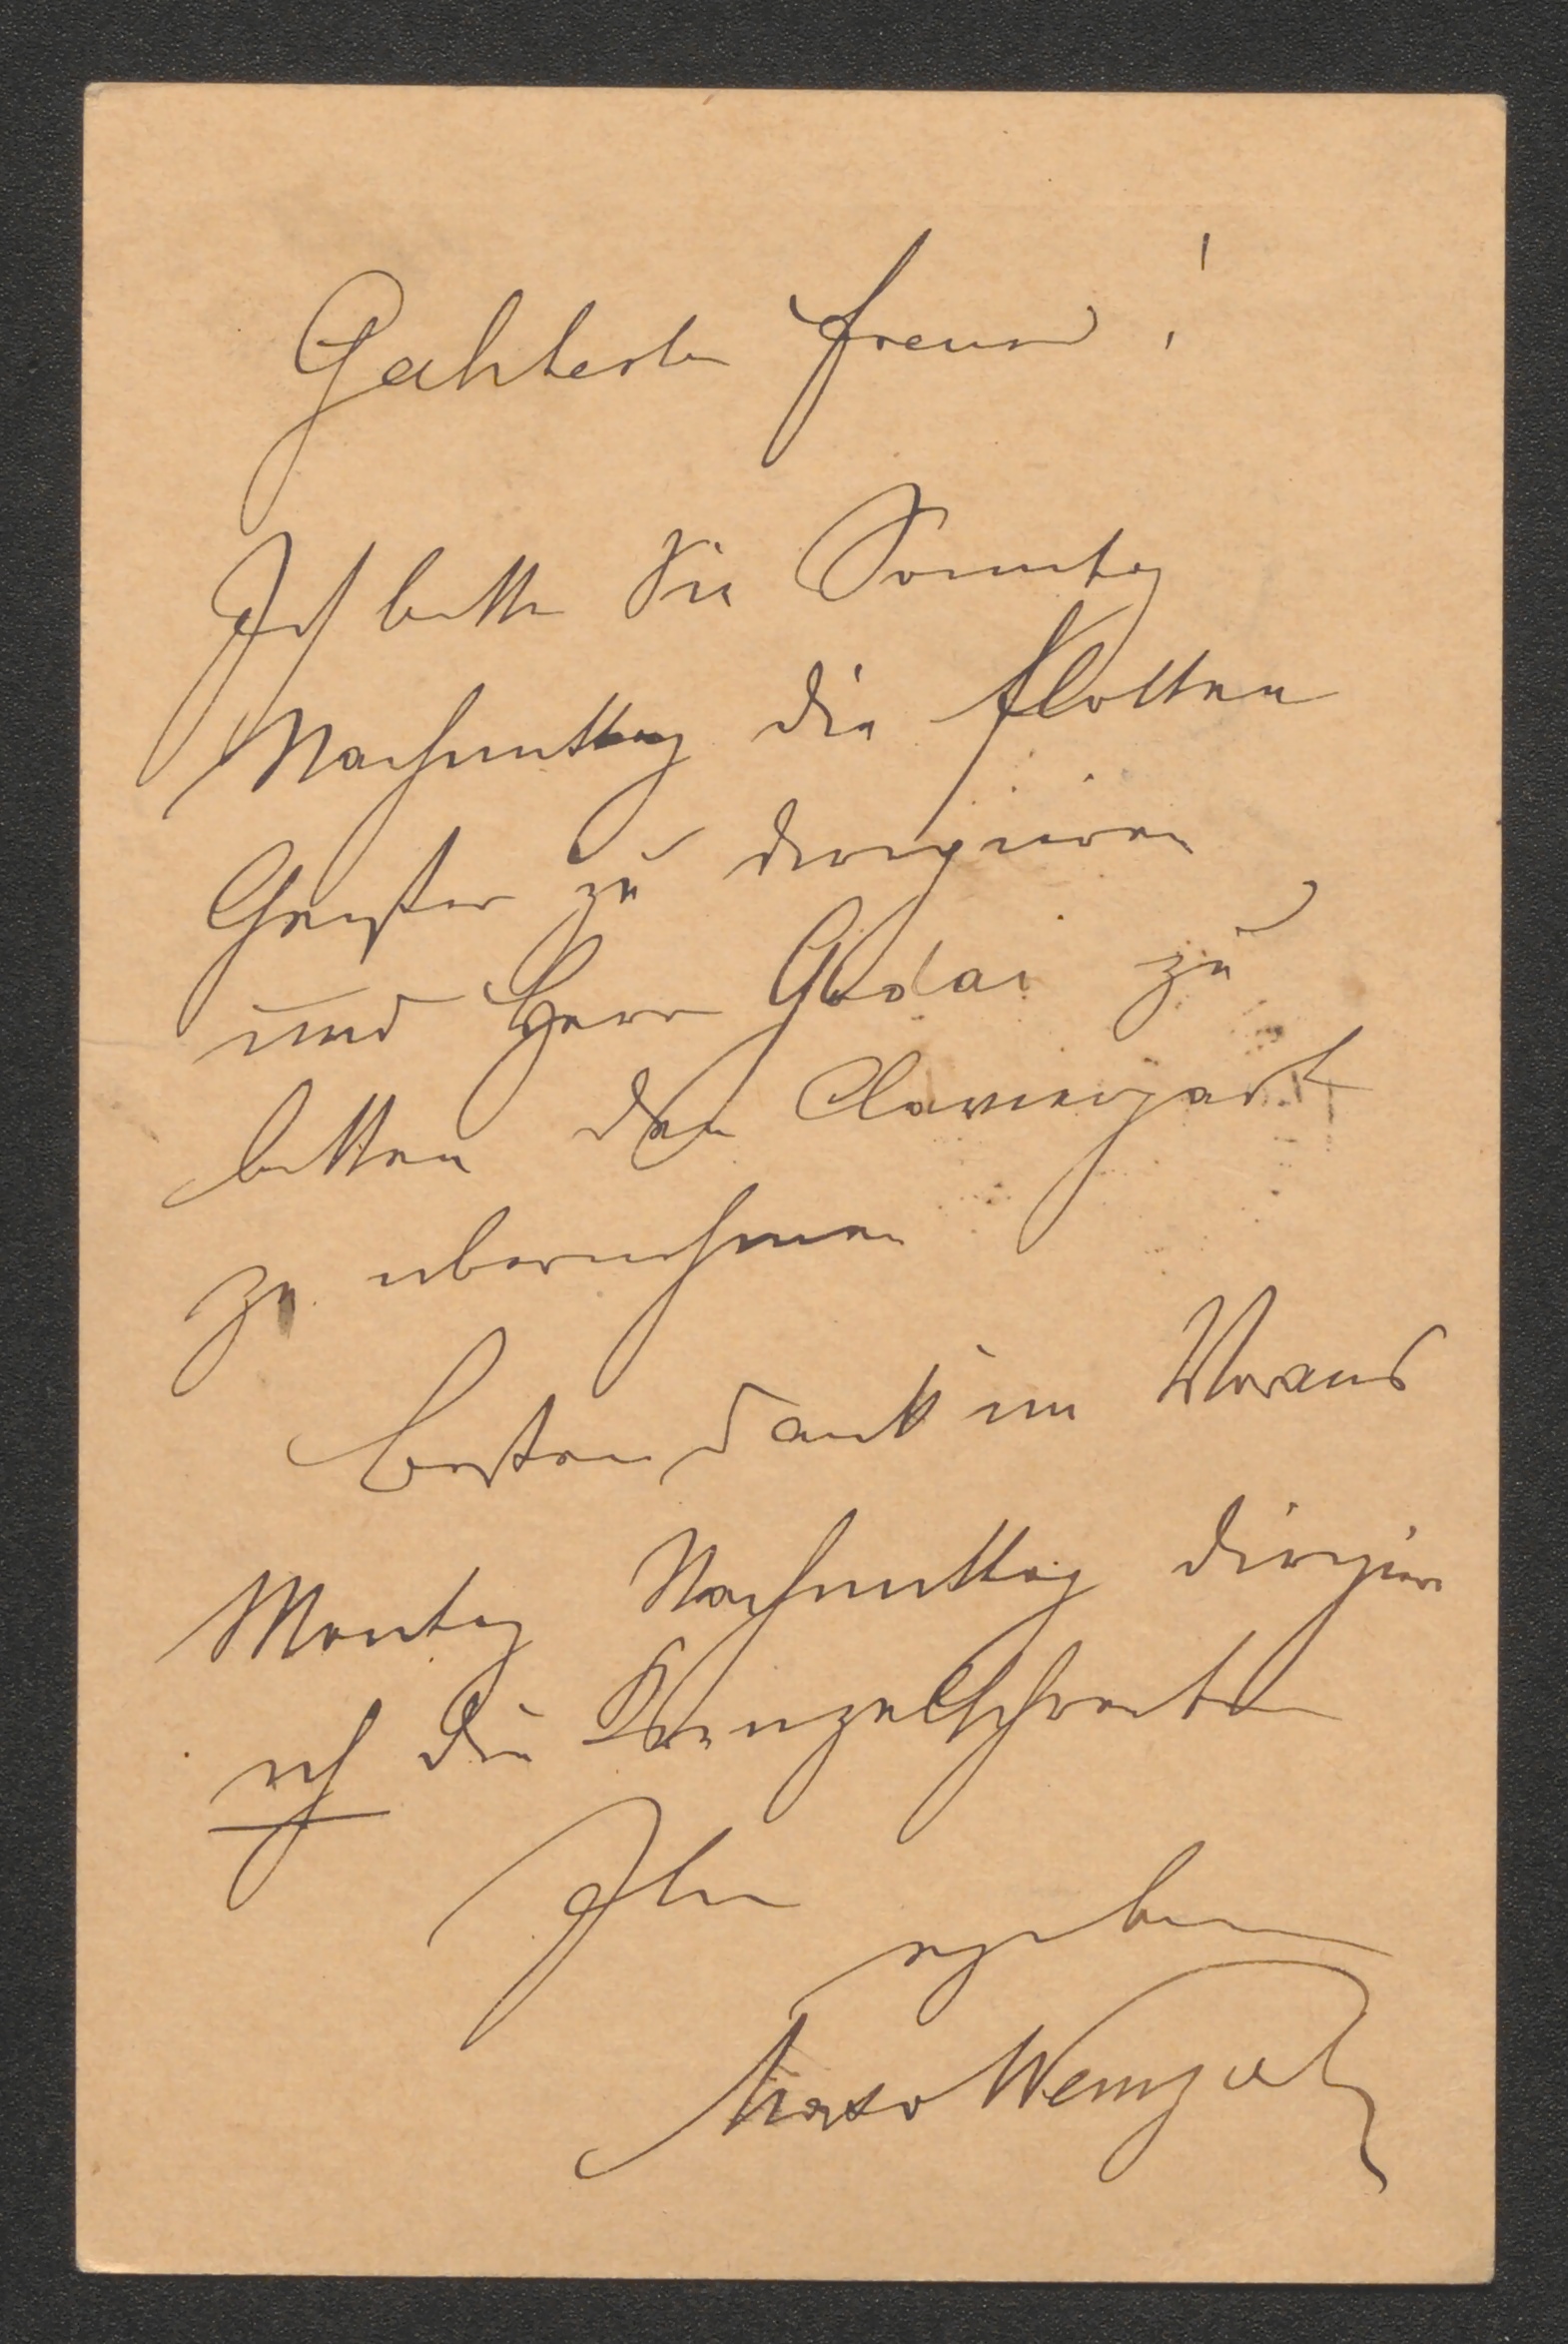 Geehrtester Freund!
Ich bitte Sie Sonntag
Nachmittag die flotten
Geister zu dirigieren
und Herr Gudai zu
bitten den Clavierpart
zu übernehmen
Besten Dank im Voraus
Montag Nachmittag dirigire
ich die Kanzelschreiber
Ihr ergebener